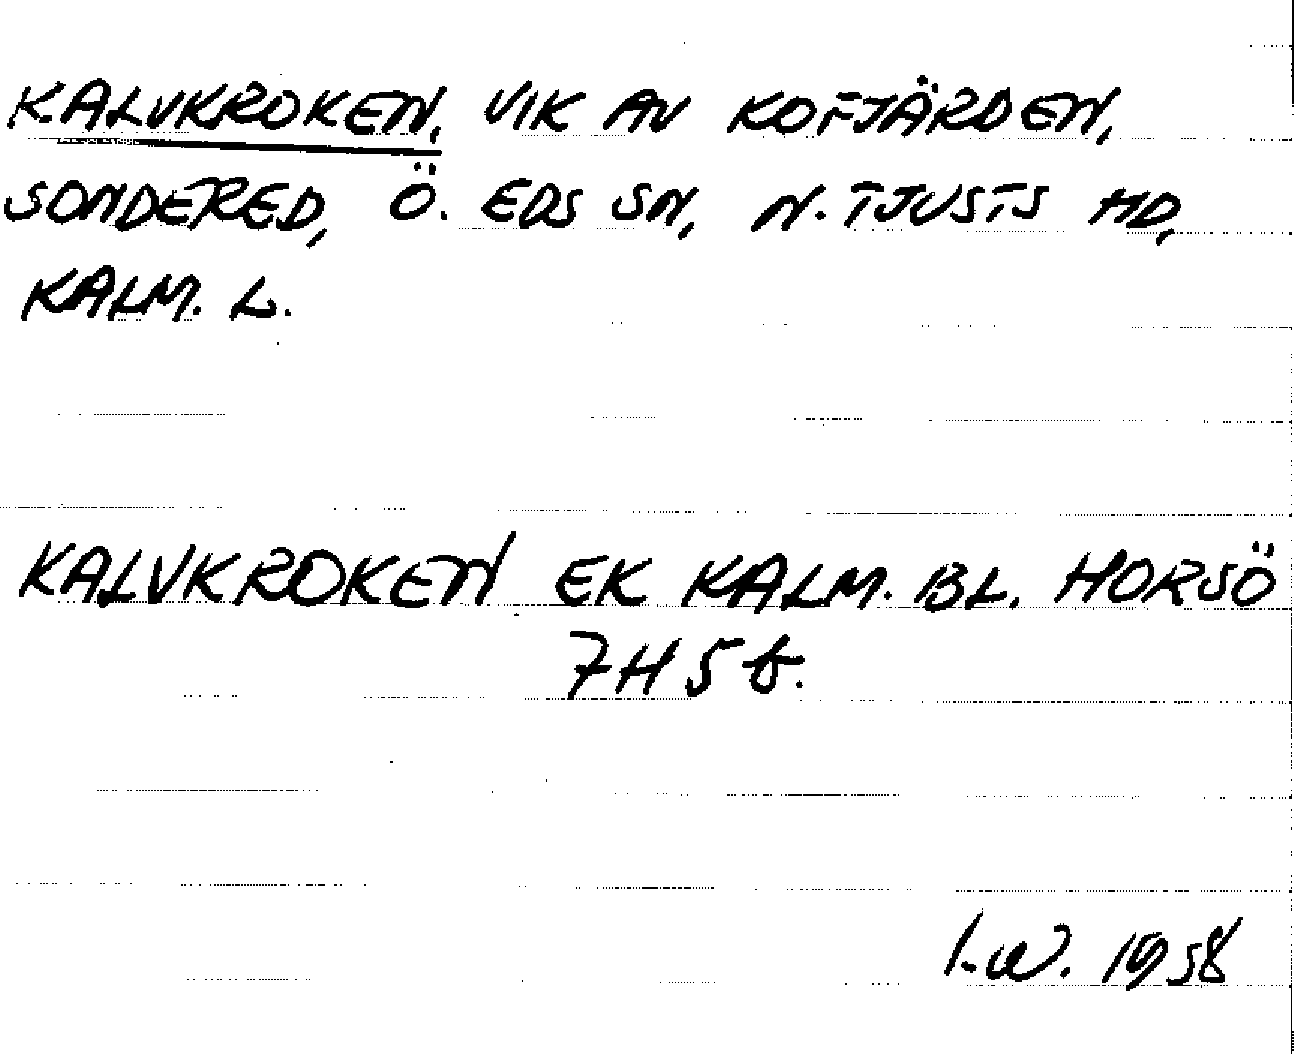 KALVKROKEN, VIK AV KOFJÄRDEN,
SONDERED, Ö. EDS SN, N. TJUSTS HD,
KALM. L.
KALVKROKEN EK KALM. BL. HORSÖ
7H5b.
I.W. 1958